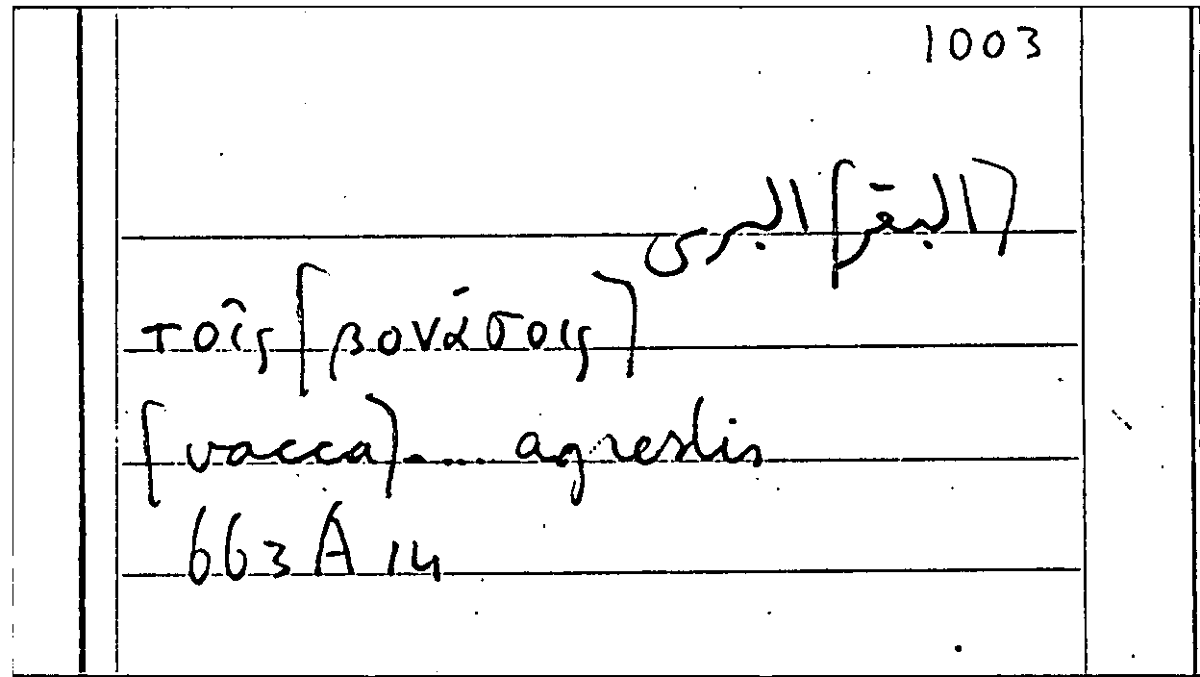 1003
(البقر) البرى
τοῖς (βονάσοις)
(vacca).... agrestis
663A 14